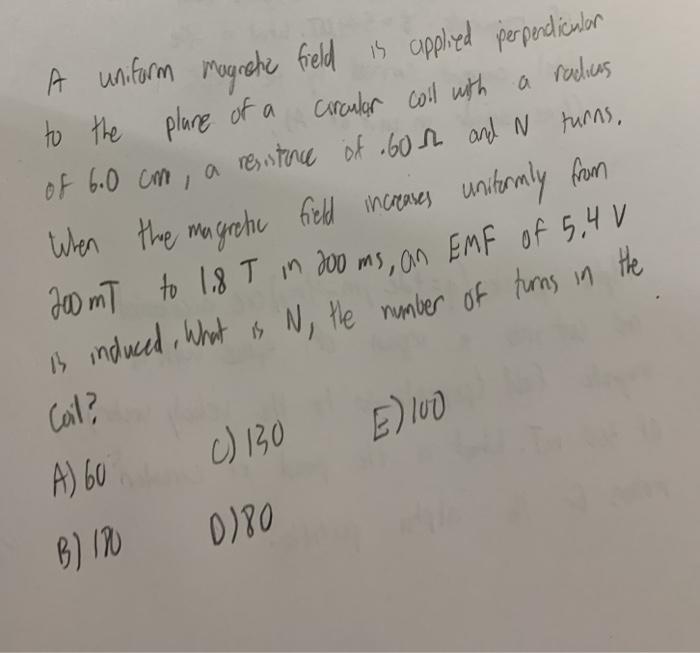 A uniform magnetic field is applied perpendicular
to the plane of a circular coil with a radius
of 6.0 cm, a resistence of .60 Ω and N turns.
When the magnetic field increases uniformly from
200 mT to 1.8 T in 200 ms, an EMF of 5.4 V
is induced. What is N, the number of turns in the
Coil?
A) 60 C) 130 E) 100
B) D) 80